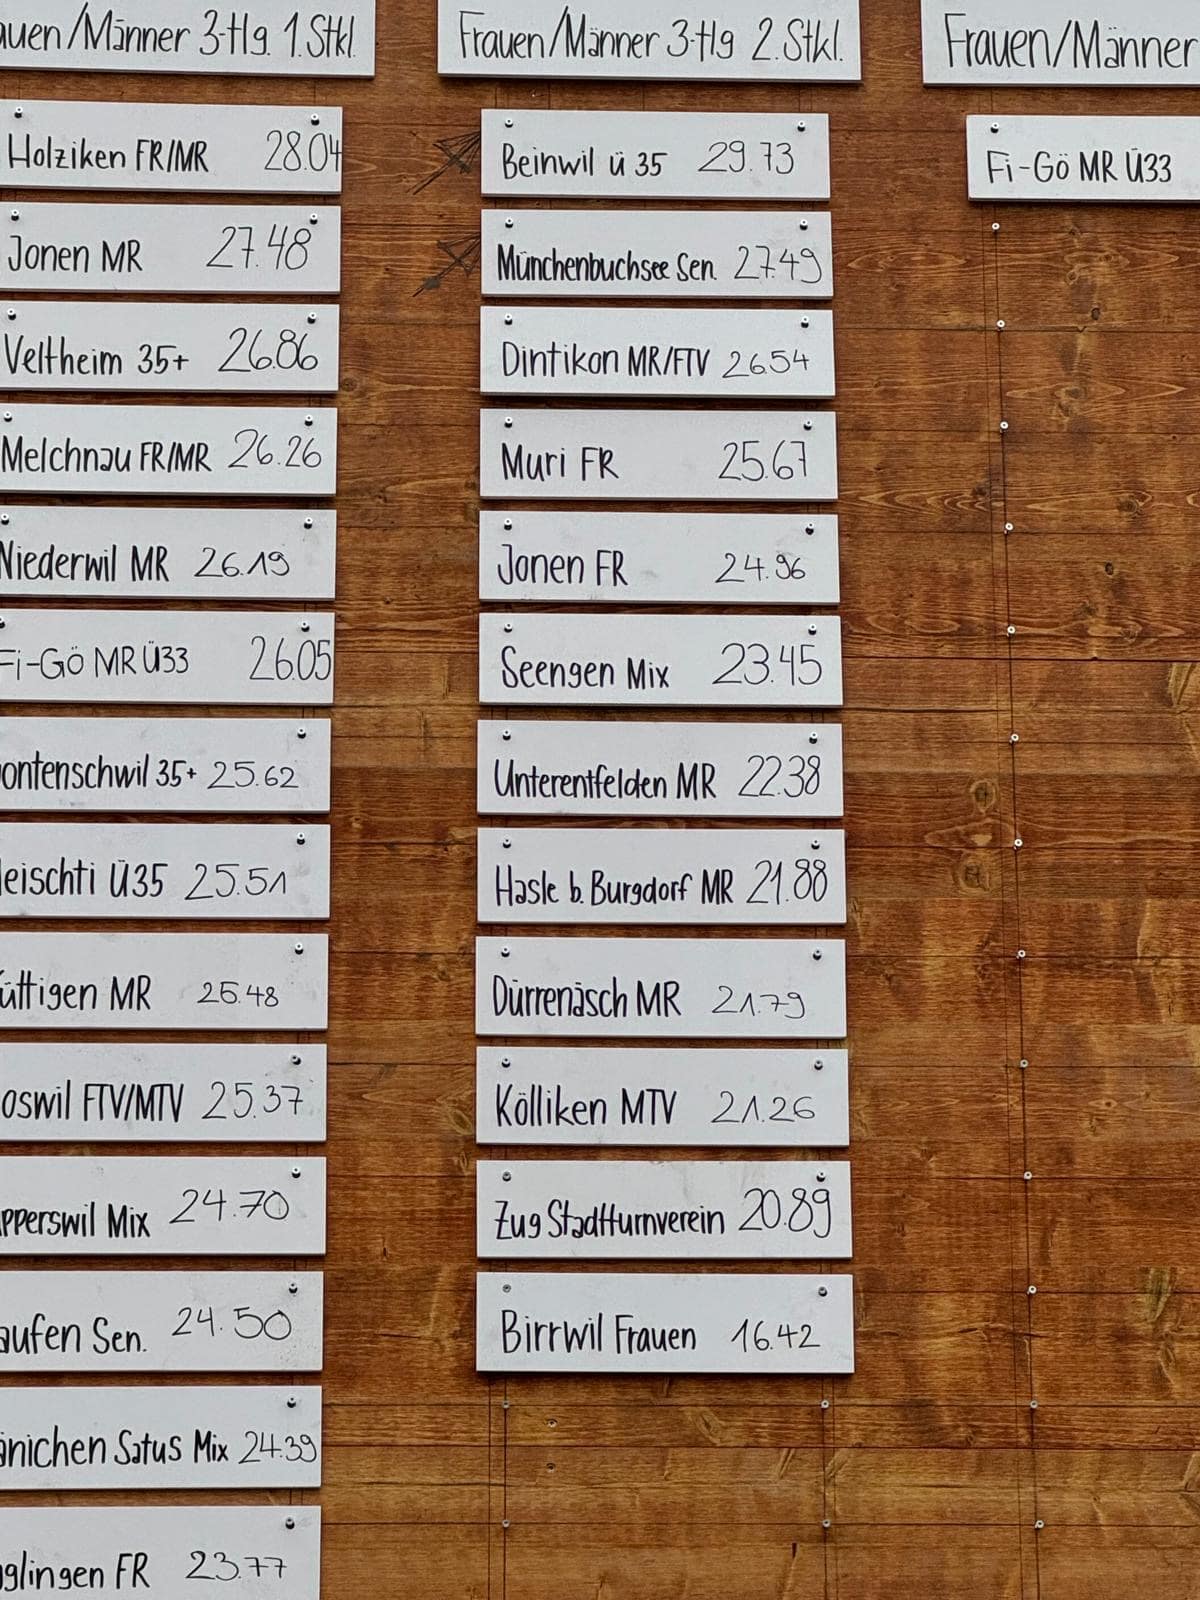 Männer 3-Hlg. 1.Stkl.
Holziken FR/MR 28.04
Jonen MR 27.48
Veltheim 35+ 26.86
Melchnau FR/MR 26.26
Niederwil MR 26.19
Fi-Gö MR Ü33 26.05
35+ 25.62
Ü35 25.51
MR 25.48
FTV/MTV 25.37
Mix 24.70
Sen. 24.50
Satus Mix 24.39
FR 23.77
Frauen/Männer 3-Hlg 2.Stkl.
Beinwil ü 35 29.73
Münchenbuchsee Sen. 27.49
Dintikon MR/FTV 26.54
Muri FR 25.67
Jonen FR 24.96
Seengen Mix 23.45
Unterentfelden MR 22.38
Hasle b. Burgdorf MR 21.88
Dürrenäsch MR 21.79
Kölliken MTV 21.26
Zug Stadtturnverein 20.89
Birrwil Frauen 16.42
Frauen/Männer
Fi-Gö MR Ü33